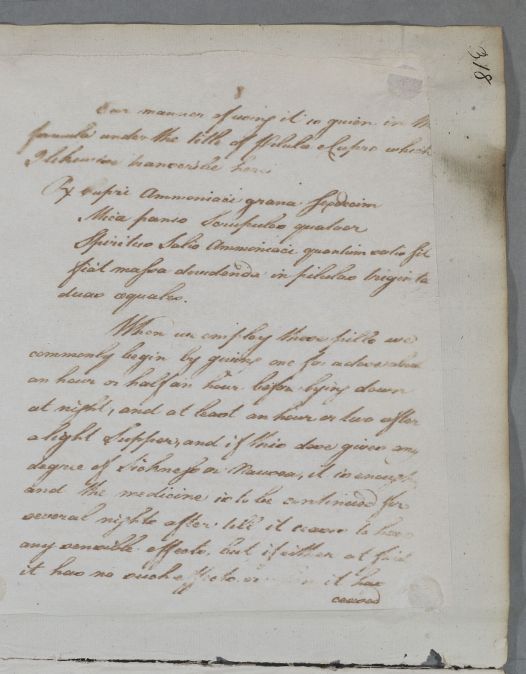 318
8
Our manner of using it is given in th
formula under the title of Pilula e Cupro which
I likewise transcribe here
℞ Cupri Ammoniaci grana sexdecim
Mica panis Scrupulos quatuor
Spiritus Salis Ammoniaci quantum satis sit
fiat massa dividenda in pilulas triginta
duas equales.
When we employ these pills we
commonly begin by giving one for a dose about
an hour or half an hour before lying down
at night, and at least an hour or two after
a light Supper, and if this dose gives any
degree of Sickness or Nausea, it is enough,
and the medicine is to be continued for
several nights after till it ceases to have
any sensible effects, but if either at first
it has no such effects or it has
ceased